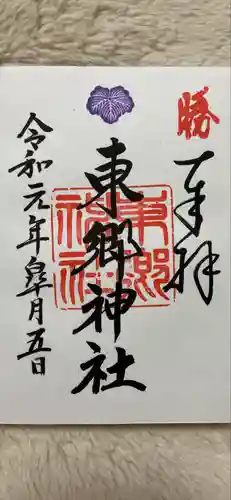 勝
奉拝
東郷神社
東郷神社
令和元年皐月五日